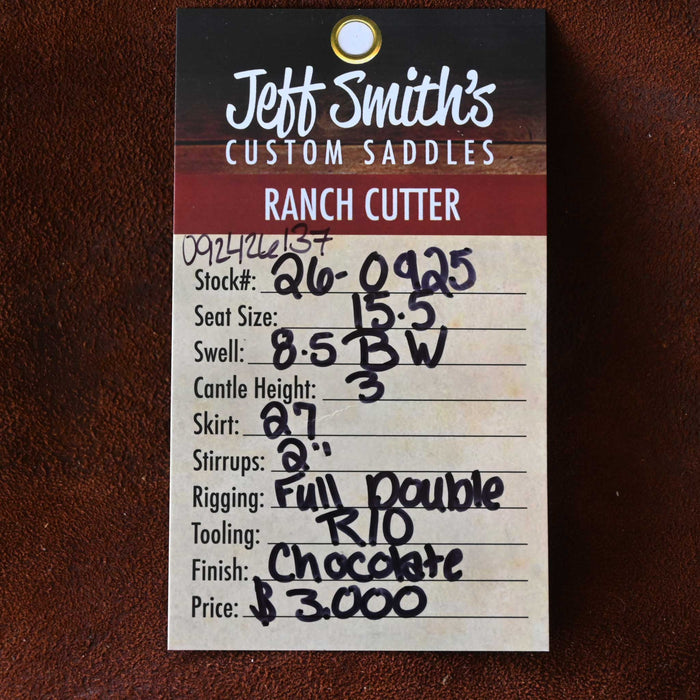 Jeff Smith's
CUSTOM SADDLES
RANCH CUTTER
092426137
Stock#: 26-0925
Seat Size: 15.5
Swell: 8.5 BW
Cantle Height: 3
Skirt: 27
Stirrups: 2"
Rigging: Full Double
Tooling: R10
Finish: Chocolate
Price: $ 3.000